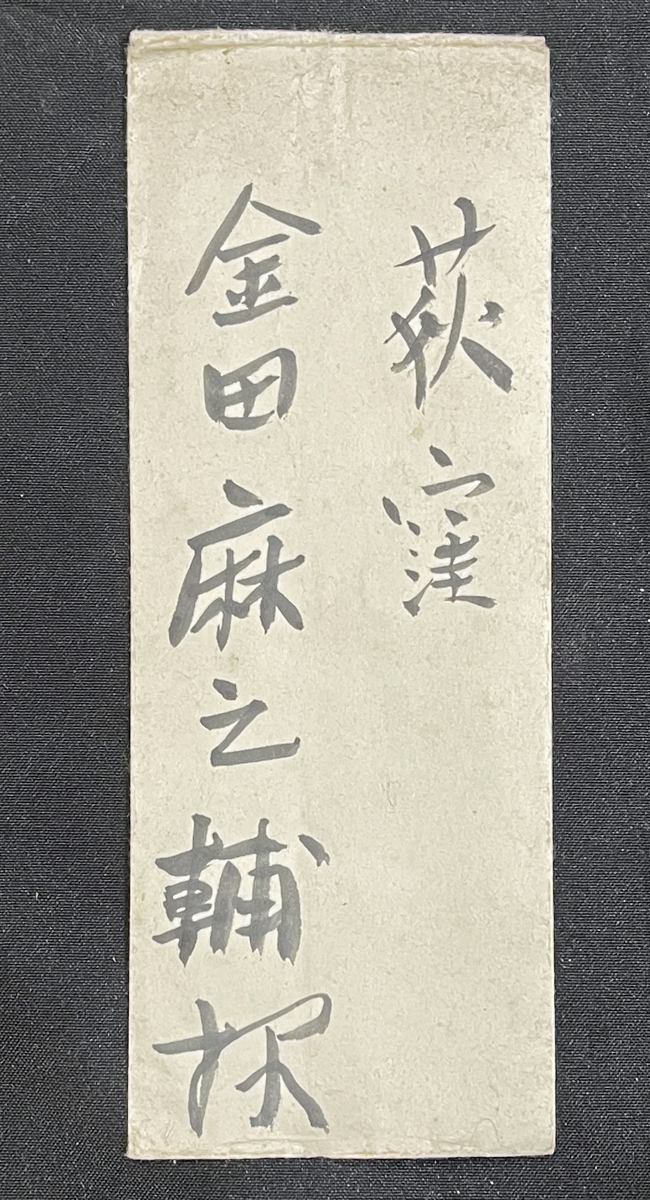 荻窪
金田麻之輔様